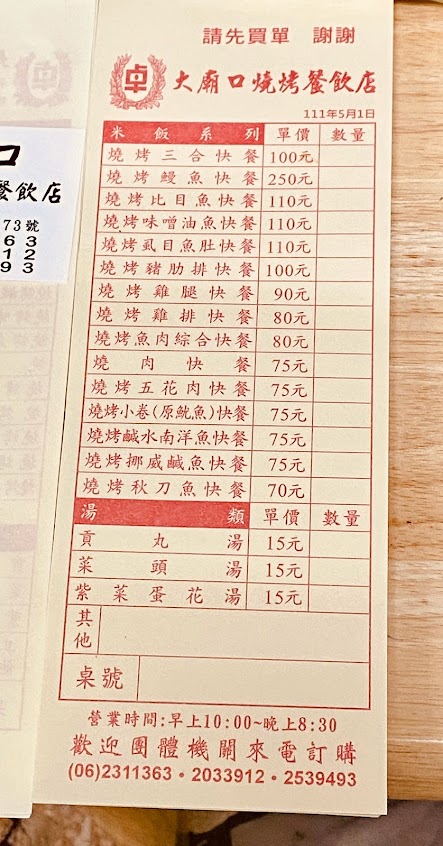 請先買單 謝謝
卓 大廟口燒烤餐飲店
111年5月1日
米飯系列 單價 數量
燒烤三合快餐 100元
燒烤鰻魚快餐 250元
燒烤比目魚快餐 110元
燒烤味噌油魚快餐 110元
燒烤虱目魚肚快餐 110元
燒烤豬肋排快餐 100元
燒烤雞腿快餐 90元
燒烤雞排快餐 80元
燒烤魚肉綜合快餐 80元
燒肉快餐 75元
燒烤五花肉快餐 75元
燒烤小卷(原魷魚)快餐 75元
燒烤鹹水南洋魚快餐 75元
燒烤挪威鹹魚快餐 75元
燒烤秋刀魚快餐 70元
湯類 單價 數量
貢丸湯 15元
菜頭湯 15元
紫菜蛋花湯 15元
其他
桌號
營業時間:早上10:00~晚上8:30
歡迎團體機關來電訂購
(06)2311363・2033912・2539493
口
餐飲店
73號
63
12
93